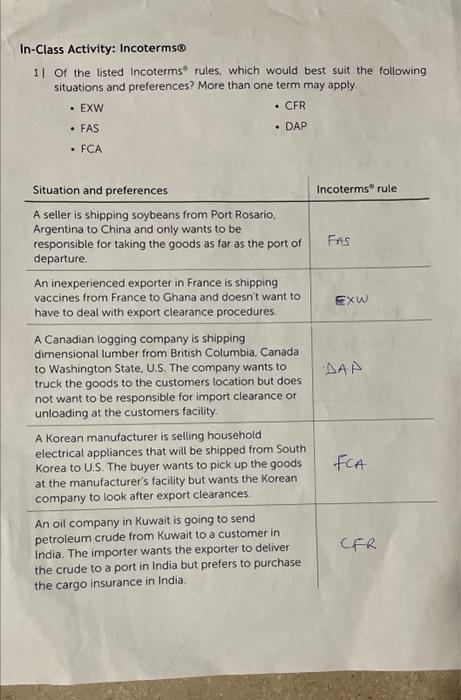 In-Class Activity: Incoterms®
1| Of the listed Incoterms® rules, which would best suit the following
situations and preferences? More than one term may apply.
• EXW
• FAS
• FCA
• CFR
• DAP
Situation and preferences
Incoterms® rule
A seller is shipping soybeans from Port Rosario,
Argentina to China and only wants to be
responsible for taking the goods as far as the port of
departure.
FAS
An inexperienced exporter in France is shipping
vaccines from France to Ghana and doesn't want to
have to deal with export clearance procedures.
EXW
A Canadian logging company is shipping
dimensional lumber from British Columbia, Canada
to Washington State, U.S. The company wants to
truck the goods to the customers location but does
not want to be responsible for import clearance or
unloading at the customers facility.
DAP
A Korean manufacturer is selling household
electrical appliances that will be shipped from South
Korea to U.S. The buyer wants to pick up the goods
at the manufacturer's facility but wants the Korean
company to look after export clearances.
FCA
An oil company in Kuwait is going to send
petroleum crude from Kuwait to a customer in
India. The importer wants the exporter to deliver
the crude to a port in India but prefers to purchase
the cargo insurance in India.
CFR